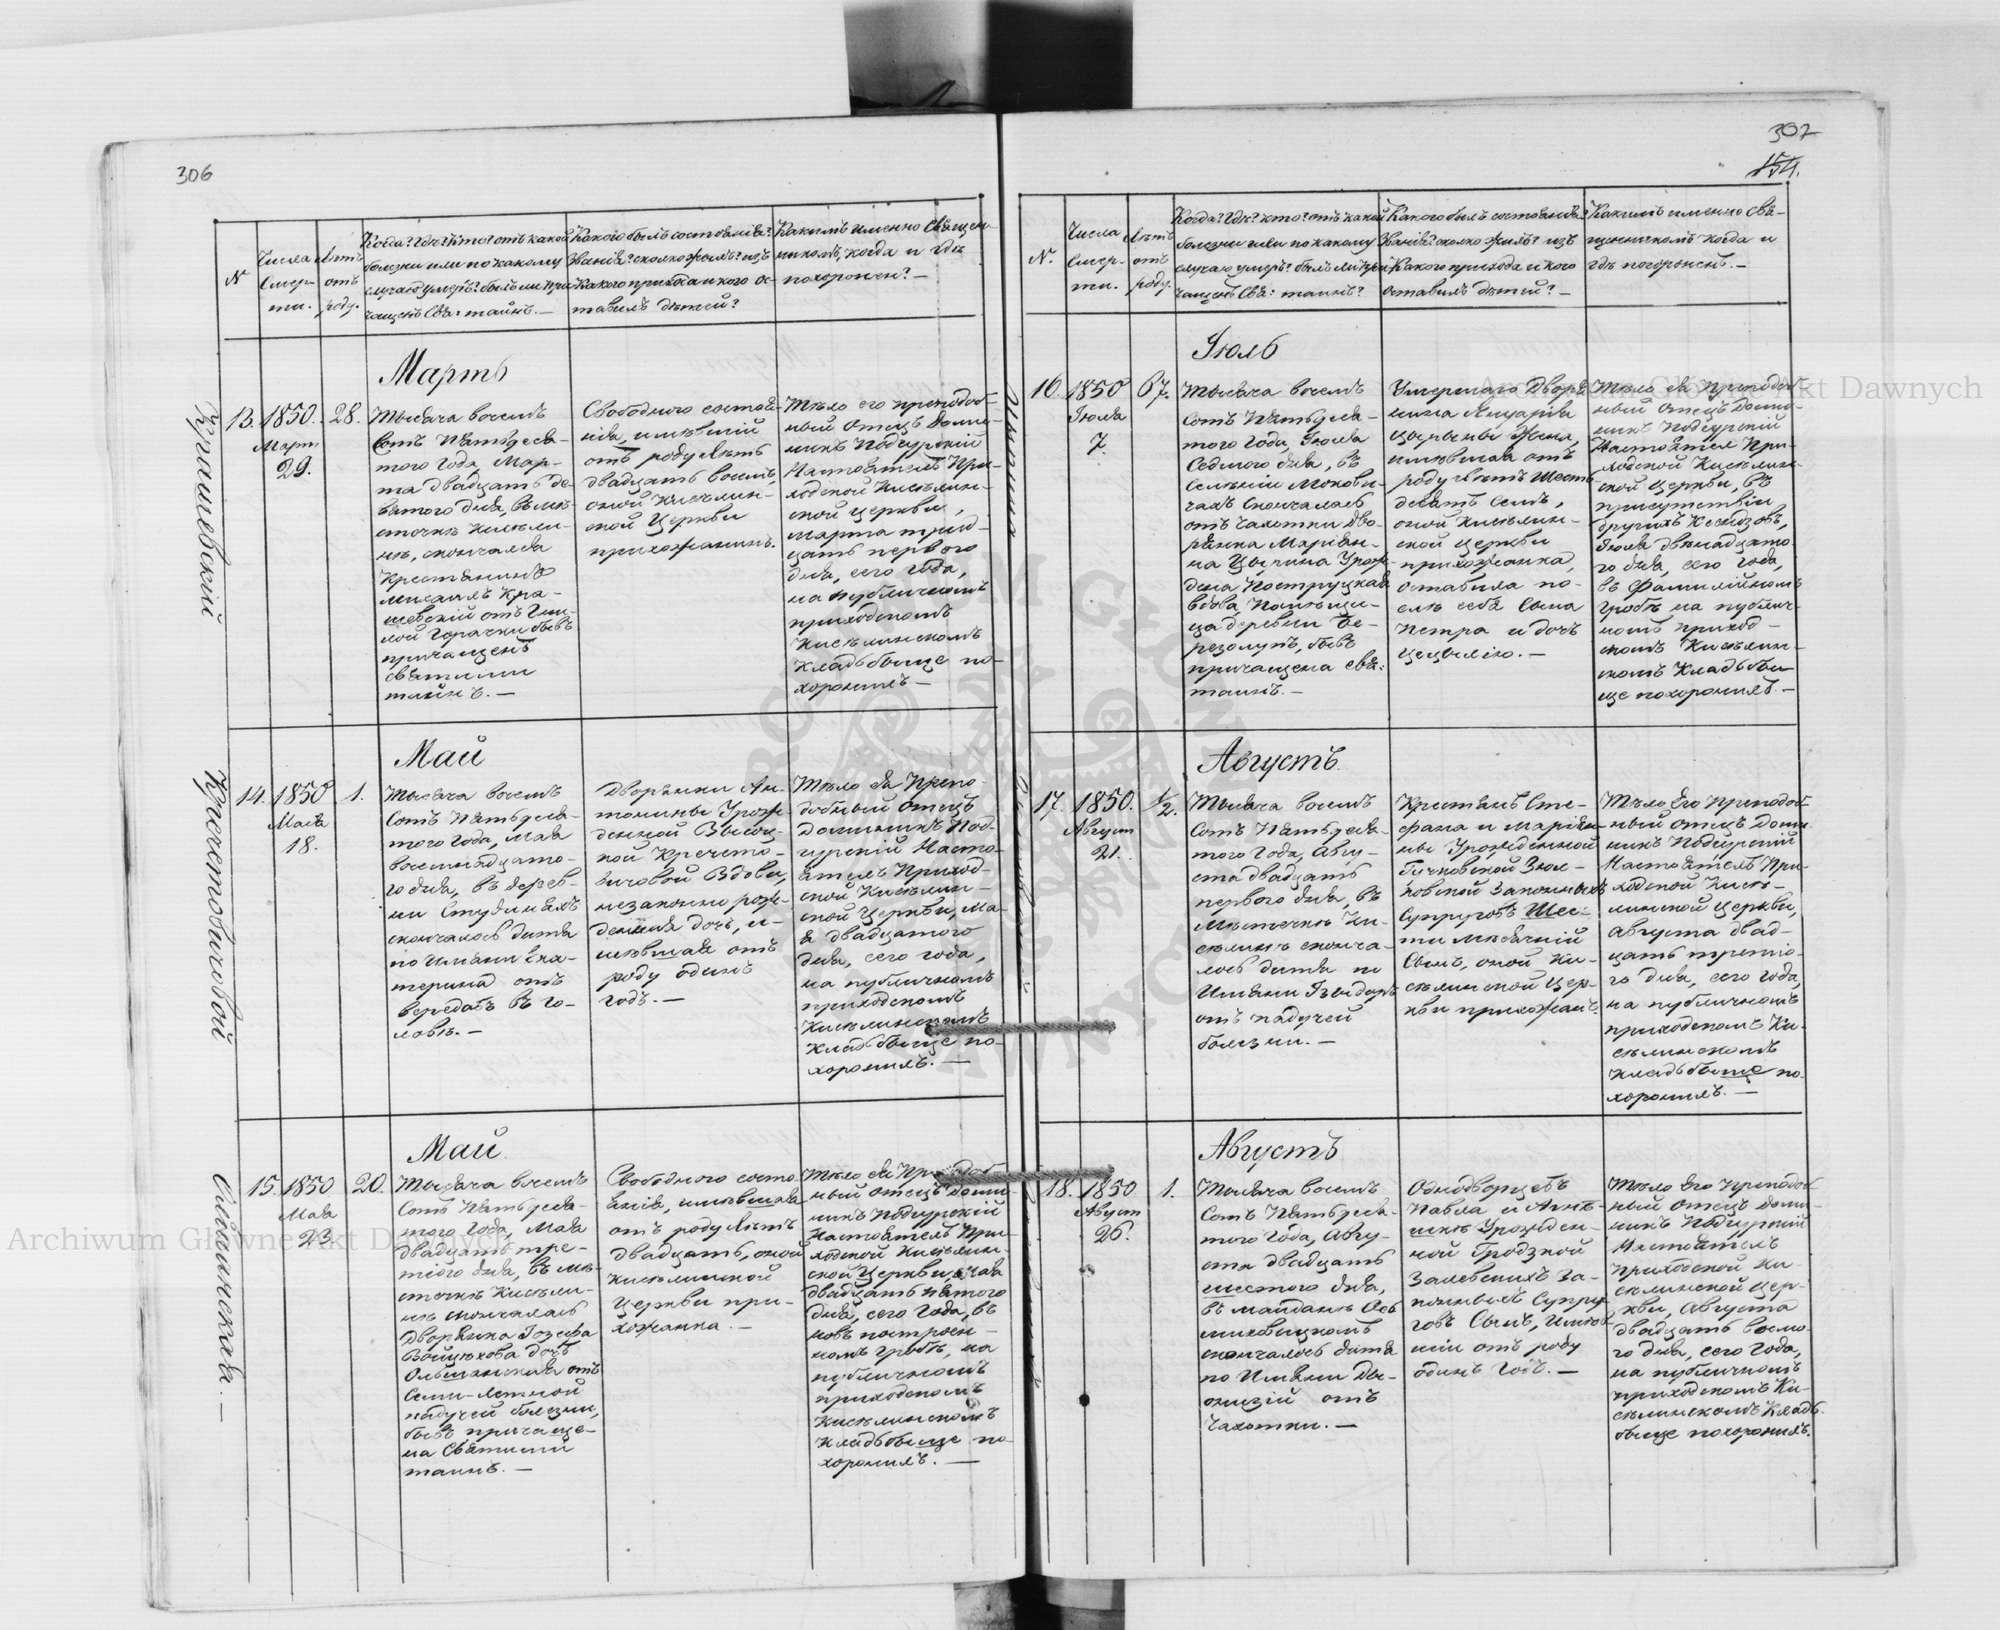 306
N
Числа Смер- ти.
Лѣтъ отъ роду.
Когда? Гдѣ? Кто? отъ какой
болезни или по какому
случаю умеръ? былъ ли при-
чащенъ Свя: тайнъ. —
Какого былъ состоянія?
Званія? сколько жилъ? изъ
какого прихода и кого ос-
тавилъ дѣтей?
Какимъ именно Священ-
никомъ, когда и гдѣ
похоронен? —
Крашевскій
Мартъ
13. 1850. 28.
Март.
29.
Тысяча восемъ
Сотъ Пятьдеся-
того Года, Мар-
та двадцать де-
вятого дня, въ мѣ-
сточкѣ Киселин-
нѣ, скончался
Крестянинъ
Михаилъ Кра-
шевскій отъ Гни-
лой Горячки бывъ
причащенъ
святыми
тайнъ. —
Свободного состоя-
нія, имѣвшій
отъ роду лѣтъ
двадцать восемъ,
оной Киселин-
ской Церкви
прихожанинъ.
Тѣло его преподоб-
ный Отецъ Доми-
никъ Подгурскій
Настоятель При-
ходской Киселин-
ской Церкви,
Марта трид-
цать первого
дня, сего Года,
на публичномъ
приходскомъ
Киселинскомъ
Кладьбыще по-
хоронилъ —
Май
14. 1850 1.
Мая
18.
Тысяча восемъ
Сотъ Пятьдеся-
того Года, Мая
восемнадцато-
го дня, въ дерев-
ни Студиняхъ
скончалось дитя
по Имяни Ека-
терина отъ
вередовъ въ го-
ловѣ. —
Дворянки Ан-
тонины Урож-
денной Высоц-
кой
Вдовы,
незаконно рож-
денная дочь, и-
мѣвшая отъ
роду одинъ
годъ. —
Тѣло Ея Препо-
добный Отецъ
Доминикъ Под-
гурскій Насто-
ятель Приход-
ской Киселин-
ской Церкви, Ма-
я двадцатого
дня, сего года,
на публичномъ
приходскомъ
Киселинскомъ
Кладьбыще по-
хоронилъ. —
Май.
15. 1850 20.
Мая
23.
Тысяча восемъ
Сотъ Пятьдеся-
того Года, Мая
двадцать тре-
тіого дня, въ мѣ-
сточкѣ Кисели-
нѣ скончалась
Дворянка Іозефа
Войцѣхова дочь
Ольшинская отъ
Семи-летной
падучей болезни,
бывъ причаще-
на Святыми
тайнъ. —
Свободного состо-
янія, имѣвшая
отъ роду лѣтъ
двадцать, оной
Киселинской
Церкви при-
хожанка. —
Тѣло Ея Преподоб-
ный Отецъ Доми-
никъ Подгурскій
Настоятель При-
ходской Киселин-
ской Церкви, Мая
двадцать пятого
дня, сего Года, въ
новъ построен-
номъ гробѣ, на
публичномъ
приходскомъ
Киселинскомъ
Кладьбыще по-
хоронилъ. —
307
154.
N.
Числа Смер- ти.
Лѣтъ отъ роду.
Когда? Гдѣ? кто? отъ какой
болезни или по какому
случаю умеръ? былъ ли при-
чащенъ Свя: тайнъ?
Какого былъ состоянія?
Званія? сколько жилъ? изъ
Какого прихода и кого
оставилъ дѣтей? —
Какимъ именно Свя-
щенникомъ когда и
гдѣ похороненъ. —
Іюль
16. 1850 67.
Іюля
7.
Тысяча восемъ
Сотъ Пятьдеся-
того Года, Іюля
Седмого дня, въ
Селѣніи Мокови-
чахъ скончалась
отъ чахотки Дво-
рянка Маріан-
на Цырина Урож-
дена Пострупская
вдова, Помѣщи-
ца деревни Бе-
резолупъ, бывъ
причащена свя:
таинъ. —
Умерлаго Дворя-
нина
жена,
имѣвшая отъ
роду лѣтъ шесть
десятъ семъ,
оной Киселин-
ской Церкви
прихожанка,
оставила по-
слѣ себя Сына
Петра и дочь
Цецылію. —
Тѣло Ея Преподоб-
ный Отецъ Доми-
никъ Подгурскій
Настоятель При-
ходской Киселин-
ской Церкви, въ
присутствіи
другихъ Ксендзовъ,
Іюля двѣнадцато-
го дня, сего года,
въ Фамилійномъ
Гробѣ на публич-
номъ приход-
скомъ Киселин-
скомъ Кладьбы-
ще похоронилъ. —
Августъ.
17. 1850. 1/2.
Август
21.
Тысяча восемъ
Сотъ Пятьдеся-
того Года, Авгу-
ста двадцать
первого дня, въ
Мѣстечкѣ Ки-
селинѣ сконча-
лось дитя по
Имяни Изыдоръ
отъ падучей
болезни. —
Крестянъ Сте-
фана и Маріан-
ны Урожденной
Гучковской Зюл-
ковской Законныхъ
Супруговъ Шес-
ти мѣсячній
Сынъ, оной Ки-
селинской Цер-
кви прихожанъ.
Тѣло Его Преподоб-
ный Отецъ Доми-
никъ Подгурскій
Настоятель При-
ходской Кисе-
линской Церкви,
Августа двад-
цать третіо-
го дня, сего Года,
на публичномъ
приходскомъ Ки-
селинскомъ
Кладьбыще по-
хоронилъ. —
Августъ
18. 1850 1.
Август
26.
Тысяча восемъ
Сотъ Пятьдеся-
того Года, Авгу-
ста двадцать
шестого дня,
въ Майданѣ
скончалось дитя
по Имяни Ді-
онизій отъ
Чахотки. —
Однодворцевъ
Павла и Агнѣ-
шки Урожден-
ной Гродзкой
Залевскихъ За-
конныхъ Супру-
говъ Сынъ, Имѣв-
шій отъ роду
одинъ Годъ. —
Тѣло Его Преподоб-
ный Отецъ Доми-
никъ Подгурскій
Настоятель
Приходской Ки-
селинской Цер-
кви, Августа
двадцать восмо-
го дня, сего Года,
на публичномъ
приходскомъ Ки-
селинскомъ Кладь-
быще похоронилъ.
Archiwum Główne Akt Dawnych
Archiwum Główne Akt Dawnych